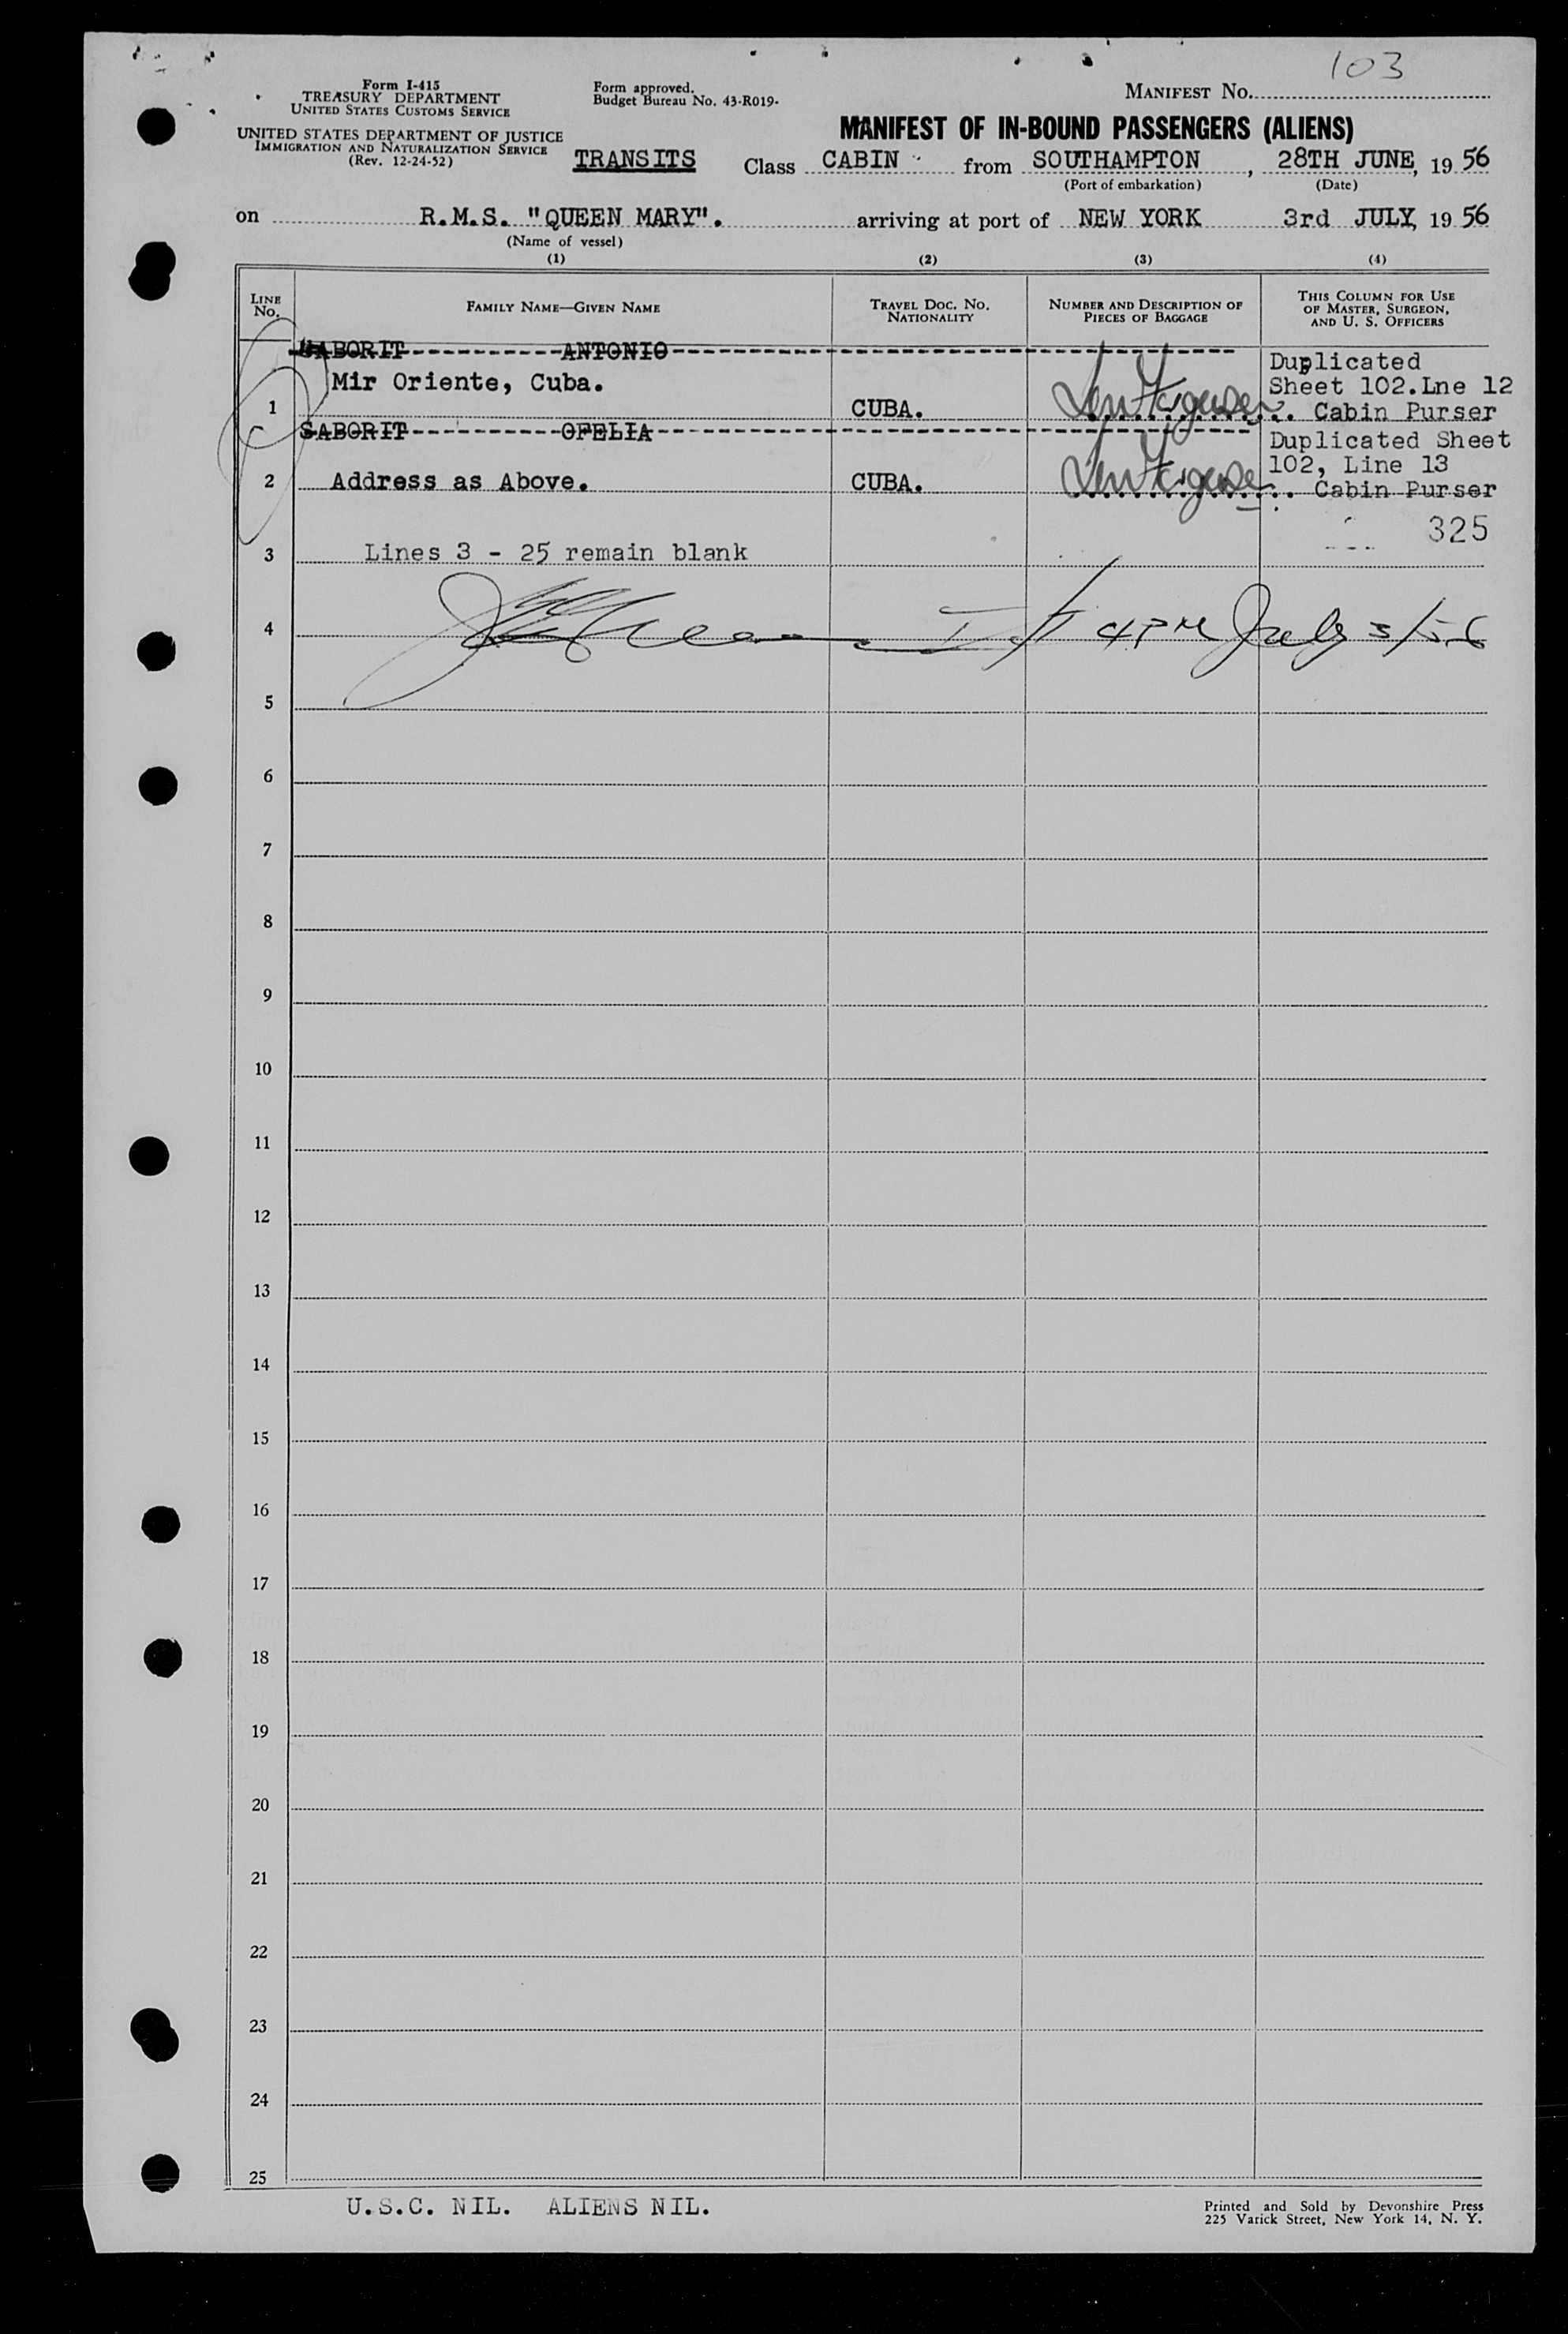 103
Form I-415
TREASURY DEPARTMENT
UNITED STATES CUSTOMS SERVICE
Form approved.
Budget Bureau No. 43-R019-
MANIFEST No.
UNITED STATES DEPARTMENT OF JUSTICE
IMMIGRATION AND NATURALIZATION SERVICE
(Rev. 12-24-52)
MANIFEST OF IN-BOUND PASSENGERS (ALIENS)
TRANSITS Class CABIN from SOUTHAMPTON, 28TH JUNE, 1956
(Port of embarkation) (Date)
on R.M.S. "QUEEN MARY". arriving at port of NEW YORK 3rd JULY, 1956
(Name of vessel)
(1) (2) (3) (4)
LINE No. FAMILY NAME—GIVEN NAME TRAVEL DOC. NO. NATIONALITY NUMBER AND DESCRIPTION OF PIECES OF BAGGAGE THIS COLUMN FOR USE OF MASTER, SURGEON, AND U. S. OFFICERS
SABORIT-----------ANTONIO
Duplicated
Mir Oriente, Cuba.
Sheet 102.Lne 12
1 CUBA. Cabin Purser
SABORIT-----------OFELIA
Duplicated Sheet
102, Line 13
2 Address as Above. CUBA. Cabin Purser
325
3 Lines 3 - 25 remain blank
4 4 PM July 3/56
5
6
7
8
9
10
11
12
13
14
15
16
17
18
19
20
21
22
23
24
25
U.S.C. NIL. ALIENS NIL.
Printed and Sold by Devonshire Press
225 Varick Street, New York 14, N. Y.